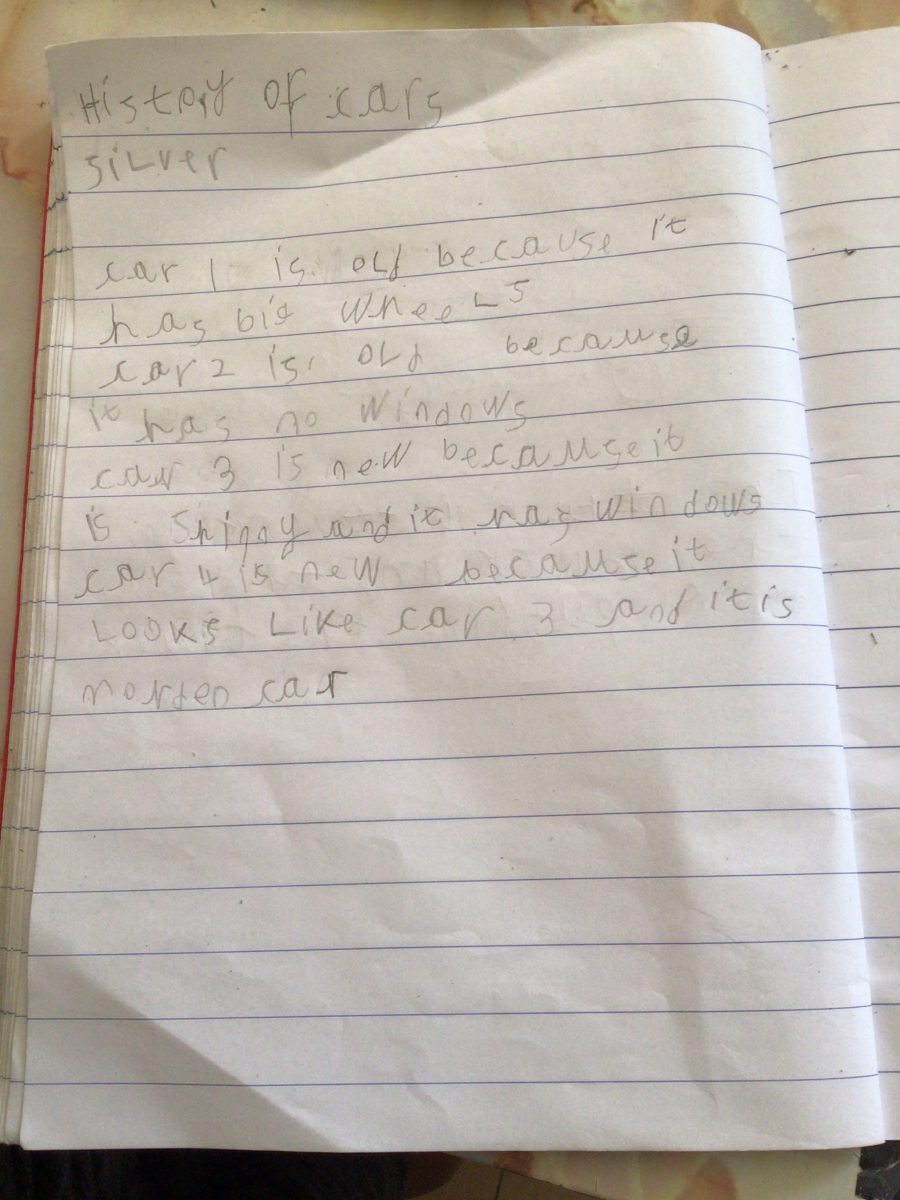 History of cars
silver
car 1 is old because it
has big wheels
car 2 is old because
it has no windows
car 3 is new because it
is shinny and it has windows
car 4 is new because it
Looks Like car 3 and it is
morden car